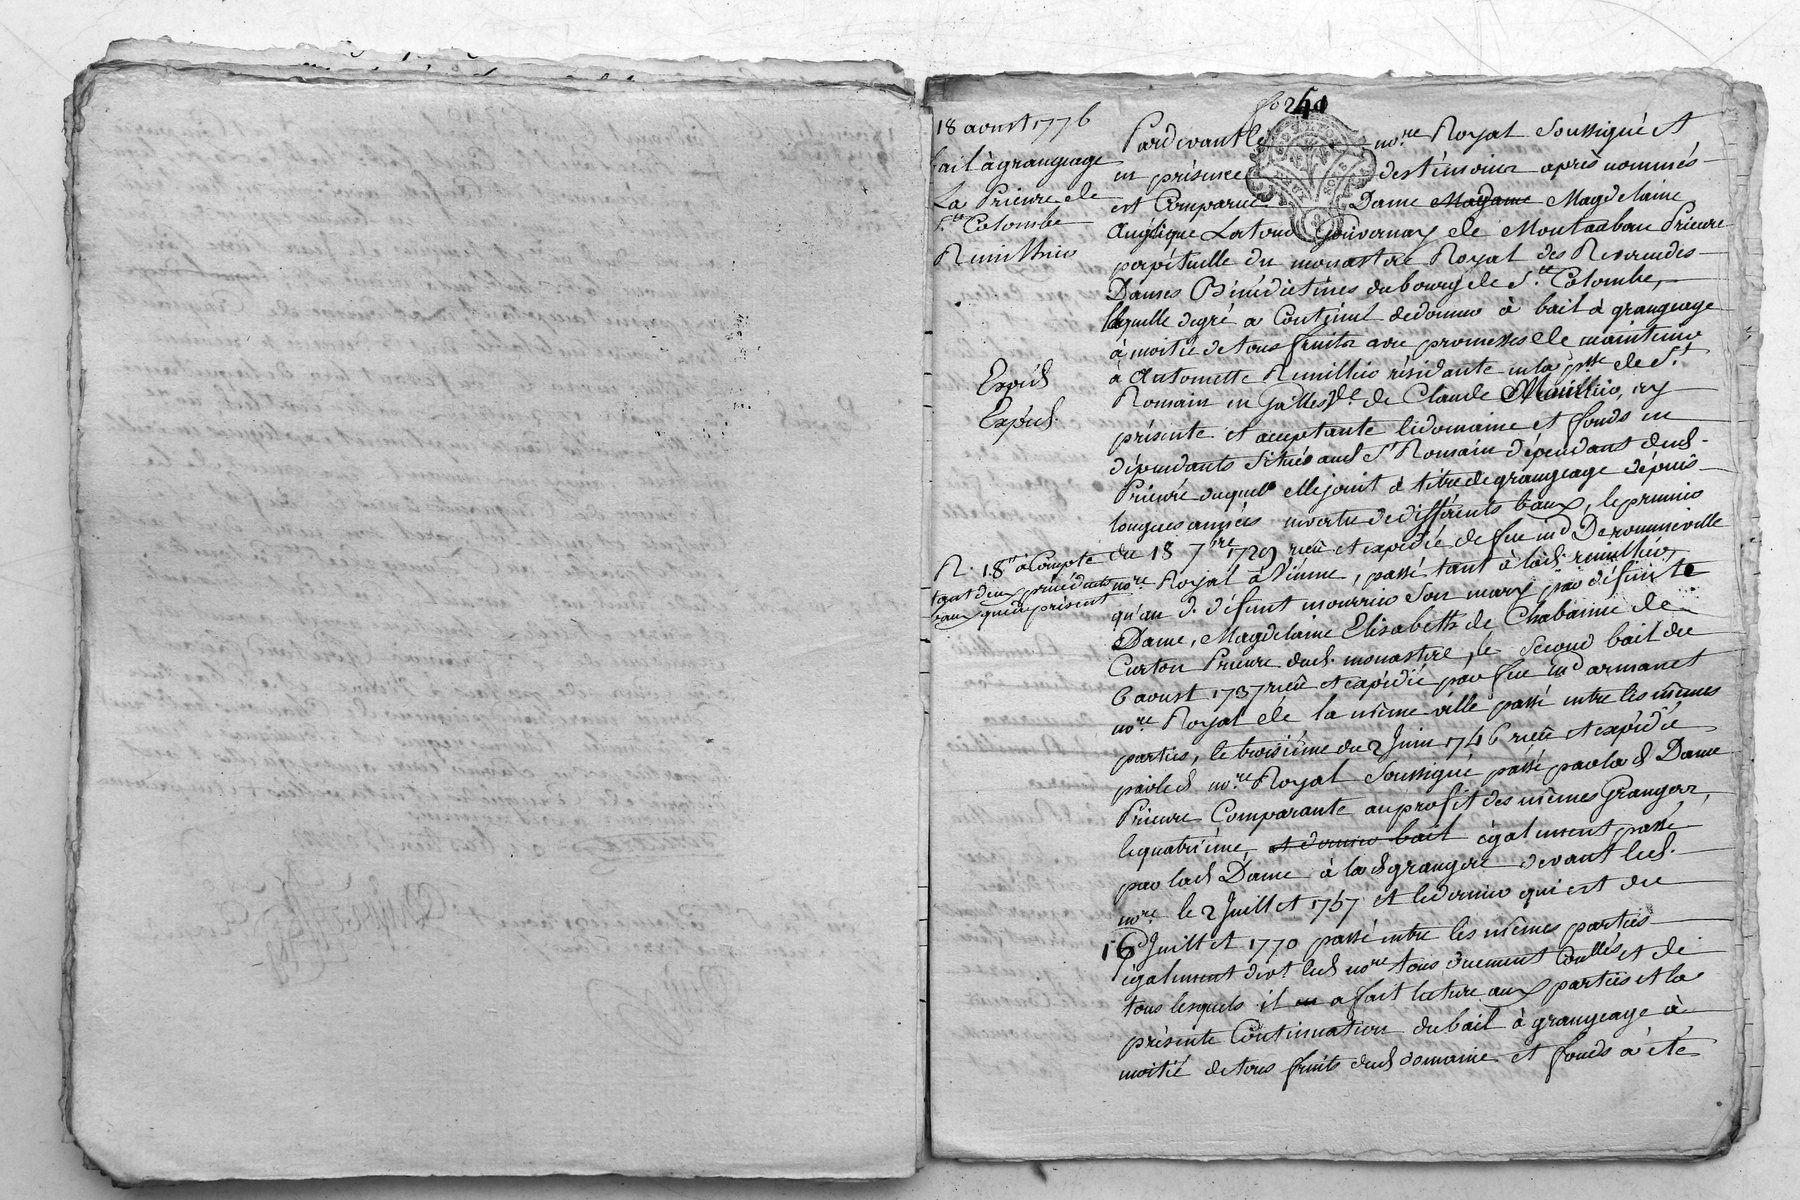 fo 240
18 aoust 1776
bail à grangeage
La Prieure de
Ste Colombe
Remillieu
Expéd.
Expéd.
R. 18# a Compte
tant deux précédents
baux que du présent
Pardevant le nore Royal Soussigné et
en présence des témoins après nommés
est Comparue Dame Madame Magdelaine
Angélique Latour Gouvernay de Montauban Prieure
perpétuelle du monastere Royal des Reverendes
Dames Bénédictines du bourg de Ste Colombe,
laquelle de gré a Continué de donner à bail à grangeage
à moitié de tous fruits avec promesses de maintenir
à Antoinette Remillieu résidante en la psse de St
Romain en Galles Ve de Claude Mourrier, icy
présente et acceptante le domaine et fonds en
dépendants situés aud St Romain dépendant dud.
Prieuré duquel elle jouit à titre de grangeage dépuis
longues années en vertu de différents baux, le premier
du 18 7bre 1729 reçu et expédié de feu Md Derommeville
nore Royal à Vienne, passé tant à lad. remillieu,
qu'au d. défunt mourrier son mary par défunte
Dame, Magdelaine Elisabeth de Chabanne de
Curton Prieure dud. monastere, le second bail du
6 aoust 1737 reçu et expédié par feu Md armanet
nore Royal de la même ville passé entre les mêmes
parties, le troisième du 2 Juin 1746 reçu et expédié
par led nore Royal Soussigné passé par lad Dame
Prieure Comparante au profit des mêmes Grangers,
le quatrième, et dernier bail également passé
par lad Dame à lad grangere devant led.
nore le 2 Juillet 1757 et le dernier qui est du
16 Juillet 1770 passé entre les mêmes parties
également devt led nore tous duement Conllés et de
tous lesquels il en a fait lecture aux parties et la
présente Continuation du bail à grangeage à
moitié de tous fruits dud domaine et fonds a été